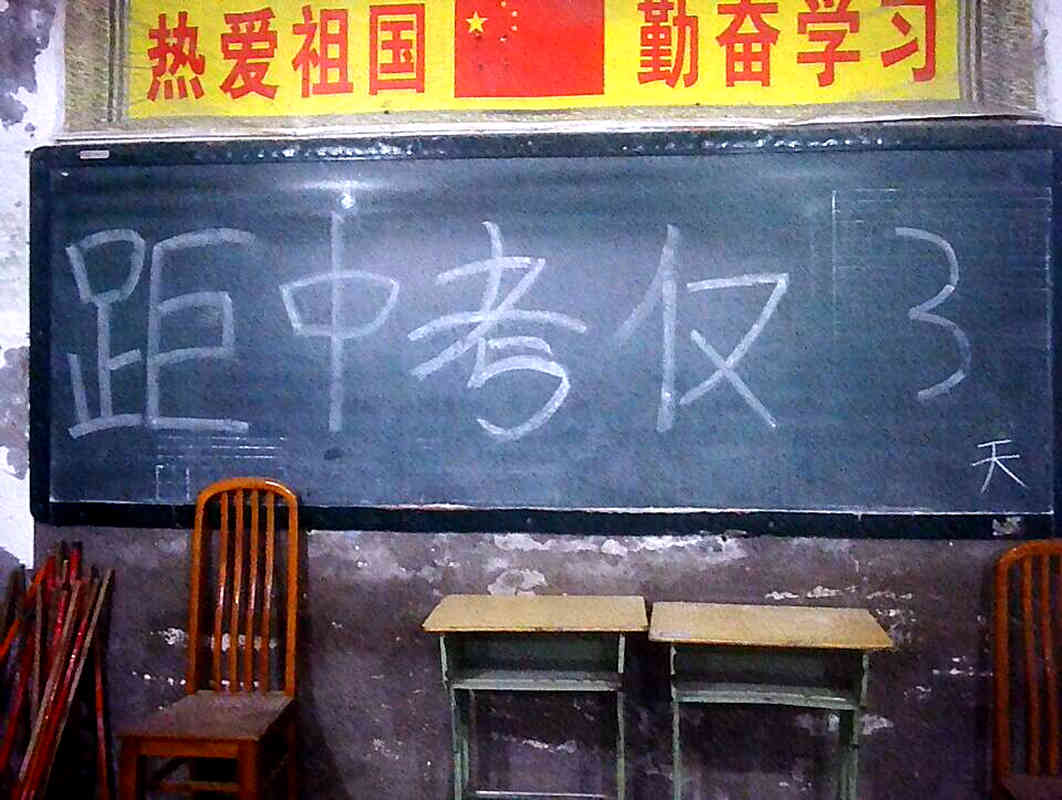 热爱祖国 勤奋学习
距中考仅 3
天